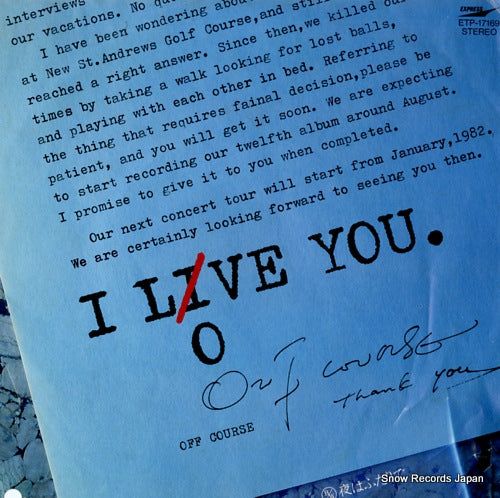 interviews
EXPRESS
ETP-17169
STEREO
our vacations. No que
I have been wondering about
at New St.Andrews Golf Course,and still
reached a right answer. Since then,we killed our
times by taking a walk looking for lost balls,
and playing with each other in bed. Referring to
the thing that requires fainal decision,please be
patient, and you will get it soon. We are expecting
to start recording our twelfth album around August.
I promise to give it to you when completed.
Our next concert tour will start from January,1982.
We are certainly looking forward to seeing you then.
I LIVE YOU.
O
OFF COURSE
Thank you
OFF COURSE
夜はふたりで
Snow Records Japan